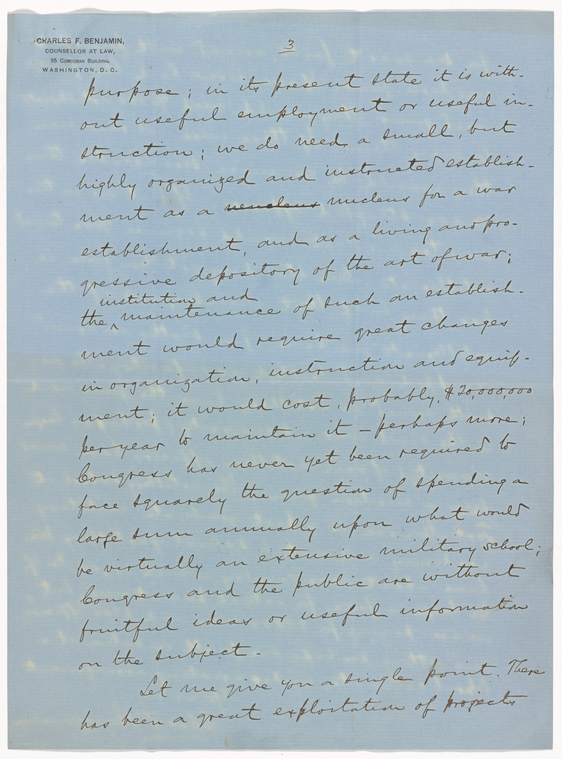 CHARLES F. BENJAMIN,
COUNSELLOR AT LAW,
95 CORCORAN BUILDING,
WASHINGTON, D. C.
3
purpose; in its present state it is with-
out useful employment or useful in-
struction; we do need a small, but
highly organized and instructed establish-
ment as a nucleus for a war
establishment, and as a living and pro-
gressive depository of the art of war;
institution and
the ^ maintenance of such an establish-
ment would require great changes
in organization, instruction and equip-
ment; it would cost, probably, $20,000,000
per year to maintain it – perhaps more;
Congress has never yet been required to
face squarely the question of spending a
large sum annually upon what would
be virtually an extensive military school;
Congress and the public are without
fruitful ideas or useful information
on the subject.
Let me give you a single point. There
has been a great exploitation of projects